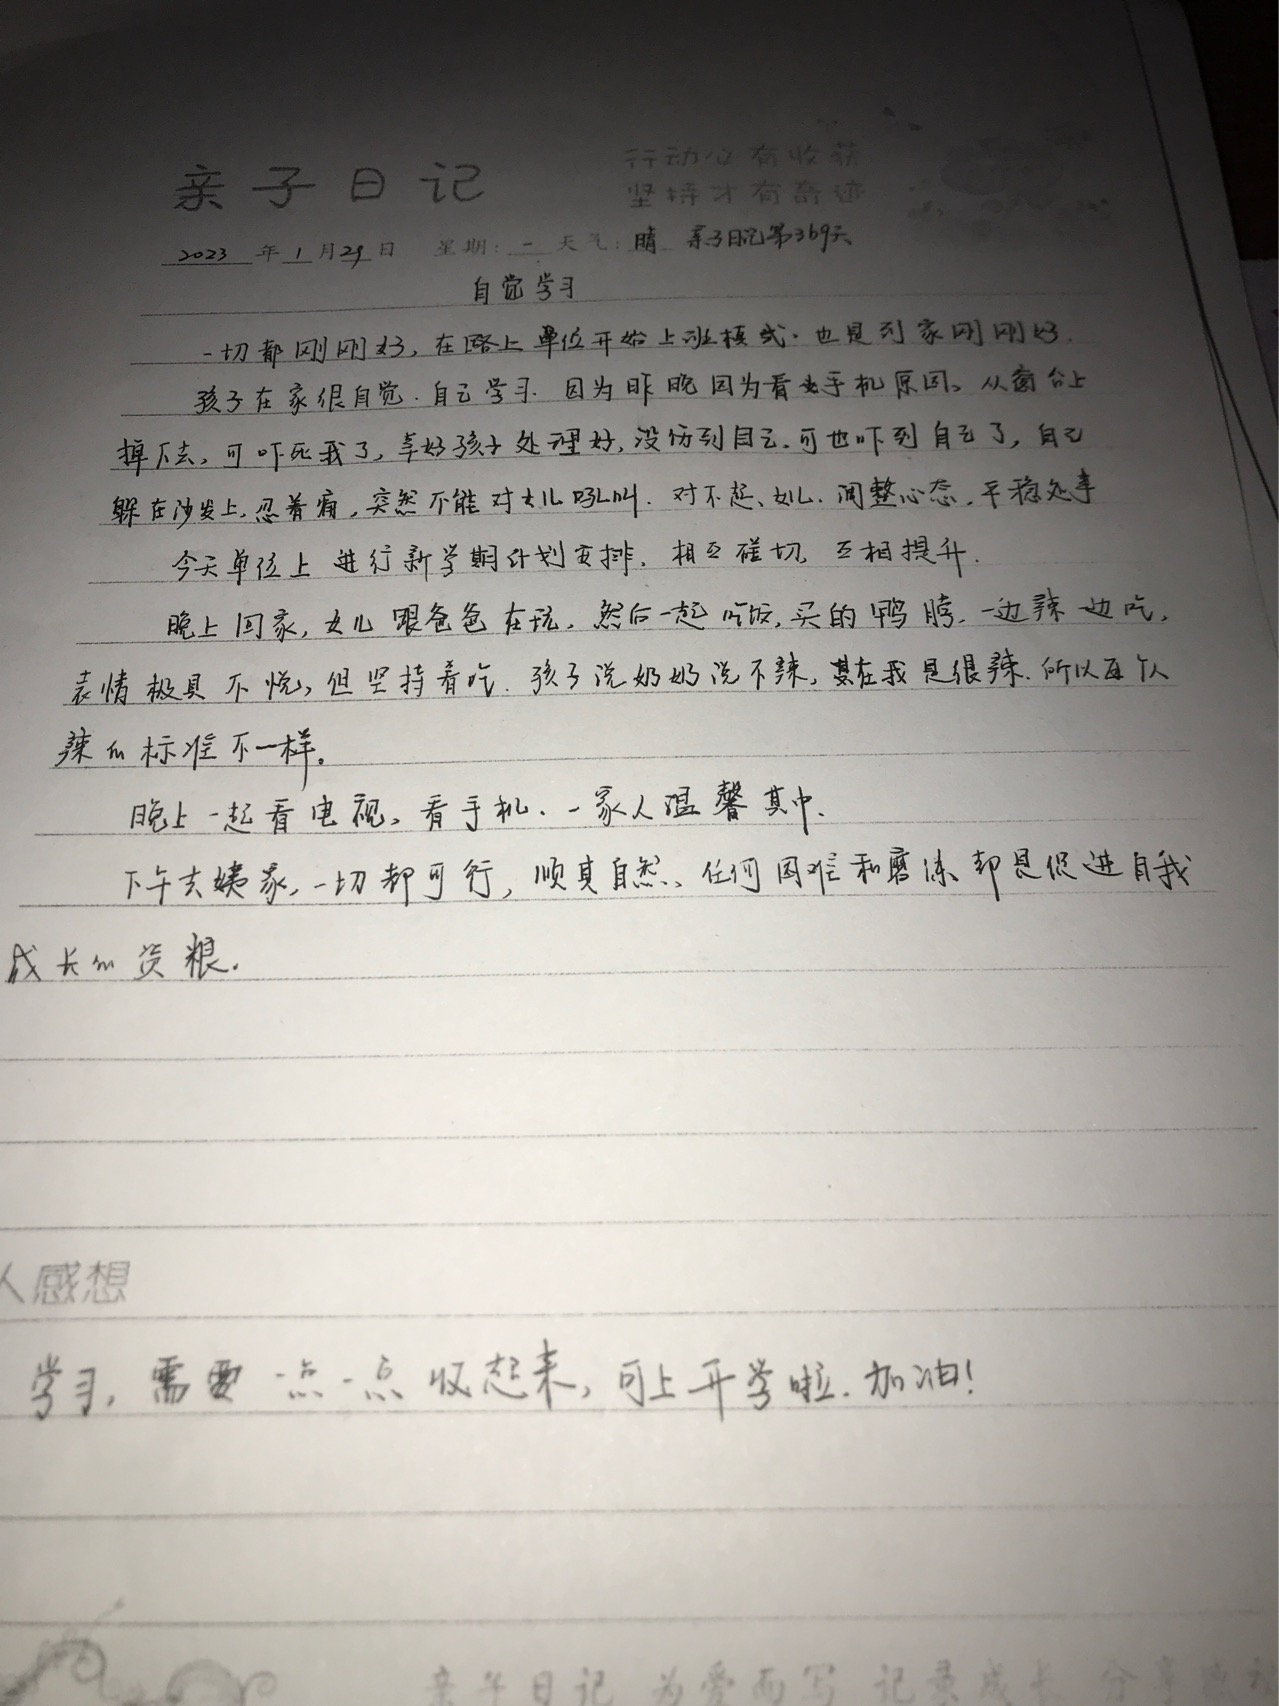 亲子日记
行动必有收获
坚持才有奇迹
2023年1月29日 星期:一 天气:晴 亲子日记第369天
自觉学习
一切都刚刚好,在路上单位开始上班模式.也是到家刚刚好.
孩子在家很自觉.自己学习.因为昨晚因为看手机原因、从窗台上
掉下去,可吓死我了,幸好孩子处理好,没伤到自己.可也吓到自己了,自己
躲在沙发上.忍着痛,突然不能对女儿吼叫.对不起、女儿.调整心态,平稳处事
今天单位上进行新学期计划安排,相互碰切,互相提升.
晚上回家,女儿跟爸爸在玩,然后一起吃饭,买的鸭脖,一边辣一边吃,
表情极具不悦,但坚持着吃.孩子说奶奶说不辣,其在我是很辣.所以每个人
辣的标准不一样。
晚上一起看电视、看手机.一家人温馨其中.
下午去姨家,一切都可行,顺其自然、任何困难和磨炼却是促进自我
成长的资粮.
人感想
学习,需要一点一点收起来,可上开学啦.加油!
亲子日记 为爱而写 记录成长 分享